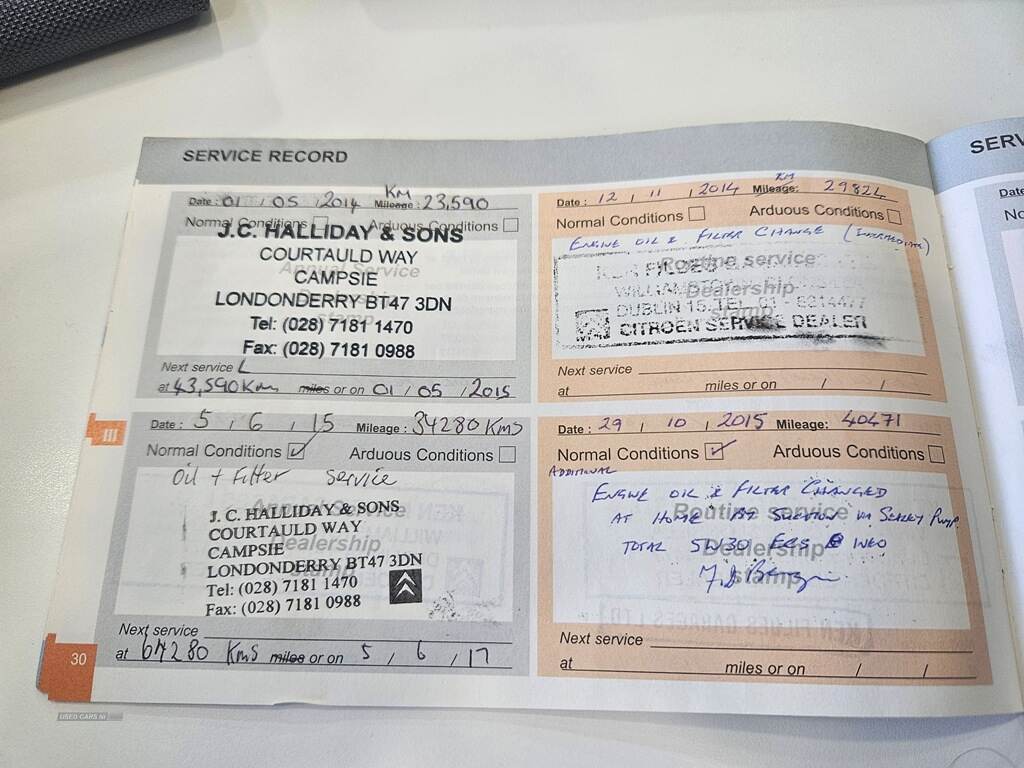 SERVICE RECORD
Date : 01 / 05 / 2014 Mileage: KM 23,590
Normal Conditions Arduous Conditions
Annual Service
J.C. HALLIDAY & SONS
COURTAULD WAY
CAMPSIE
LONDONDERRY BT47 3DN
Tel: (028) 7181 1470
Fax: (028) 7181 0988
Next service
at 43,590 Kms miles or on 01 / 05 / 2015
Date : 12 / 11 / 2014 Mileage: KM 29824
Normal Conditions Arduous Conditions
ENGINE OIL & FILTER CHANGE (INTERMEDIATE)
Routine service
Dealership
stamp
KEN FILDES
DUBLIN 15. TEL. 01 -
CITROEN SERVICE DEALER
Next service
at miles or on / /
Date : 5 / 6 / 15 Mileage : 34280 KMS
Normal Conditions Arduous Conditions
Oil + Filter Service
Dealership
J. C. HALLIDAY & SONS
COURTAULD WAY
CAMPSIE
LONDONDERRY BT47 3DN
Tel: (028) 7181 1470
Fax: (028) 7181 0988
Next service
at 64280 KMS miles or on 5 / 6 / 17
Date : 29 / 10 / 2015 Mileage: 40471
Normal Conditions Arduous Conditions
ADDITIONAL
ENGINE OIL & FILTER CHANGED
AT HOME BY SUCTION VIA SEALEY PUMP.
TOTAL 5W30 ECS INEO
Routine service
Dealership
stamp
Next service
at miles or on / /
III
30
SERV
Date
No
USED CARS NI